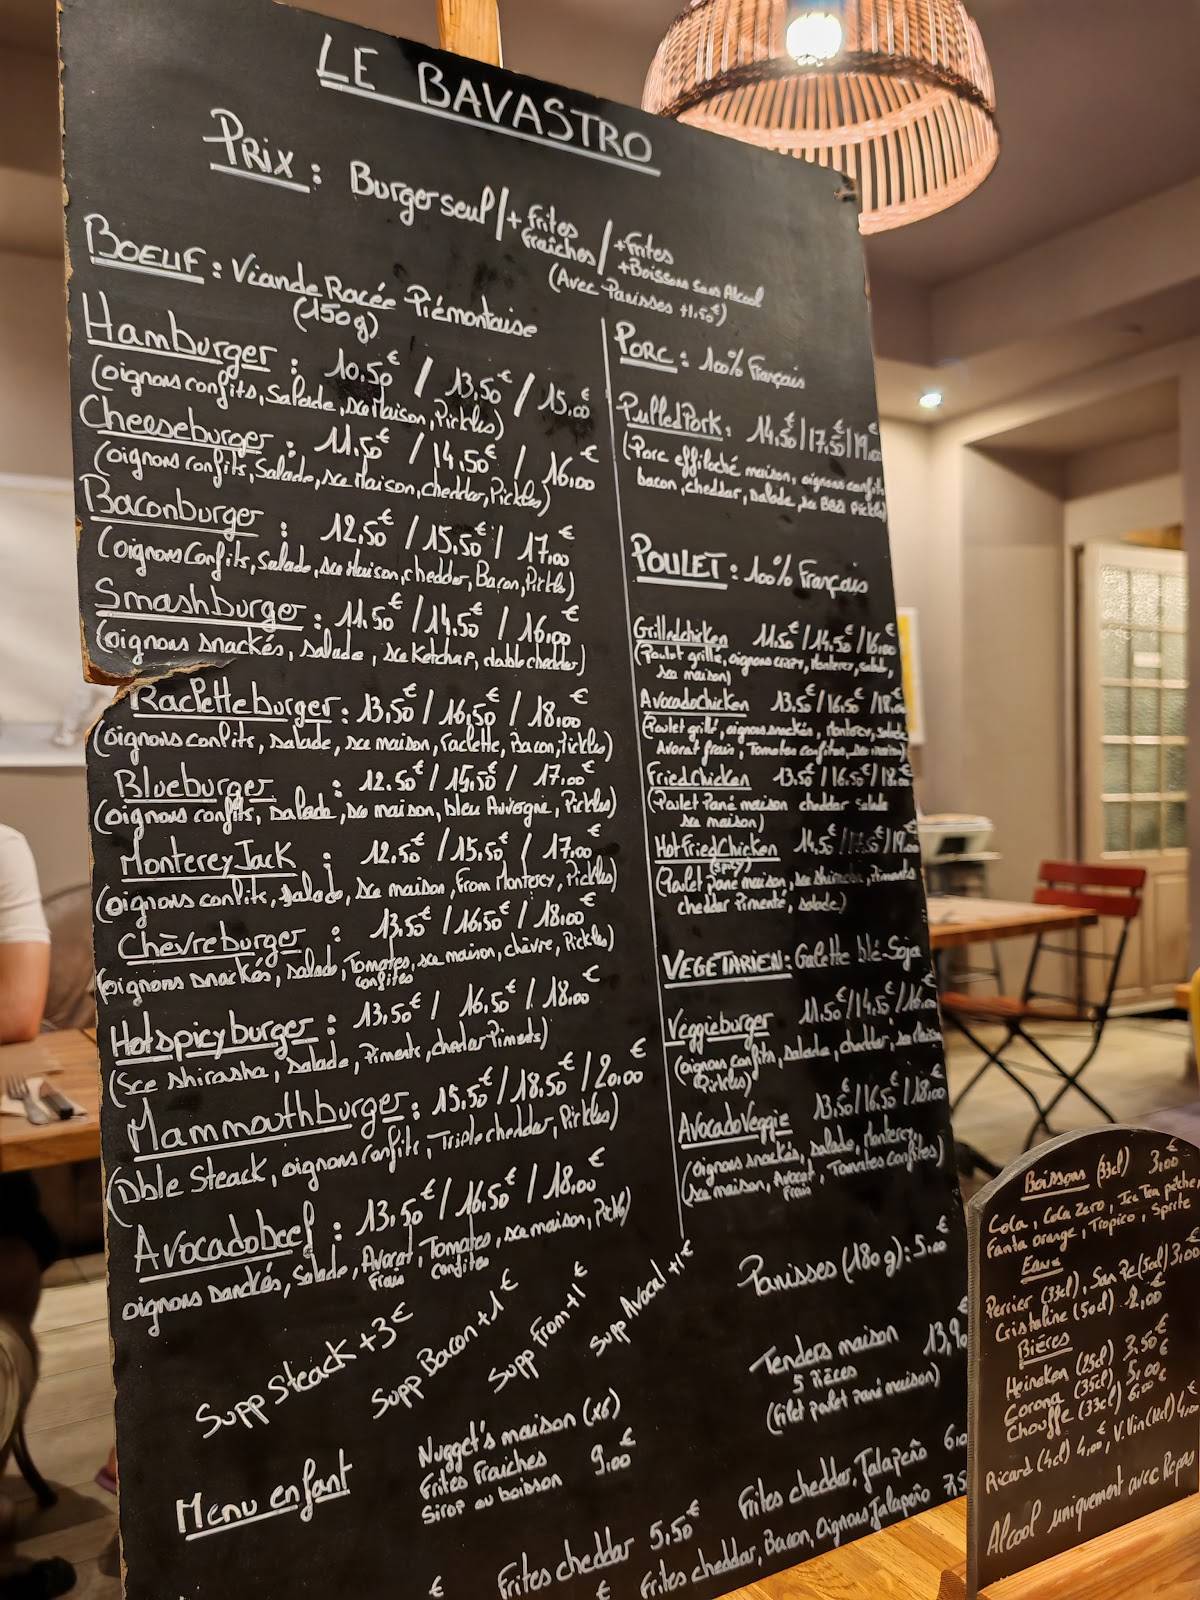 LE BAVASTRO
PRIX : Burger seul / + Frites Fraîches / + Frites + Boisson Sans Alcool
(Avec Panisses +1.50€)
BOEUF : Viande Racée Piémontaise
(150g)
Hamburger : 10.50€ / 13.50€ / 15.00€
(oignons confits, Salade, sce Maison, Pickles)
Cheeseburger : 11.50€ / 14.50€ / 16.00€
(oignons confits, Salade, sce Maison, cheddar, Pickles)
Baconburger : 12.50€ / 15.50€ / 17.00€
(oignons Confits, Salade, sce Maison, cheddar, Bacon, Pickles)
Smashburger : 11.50€ / 14.50€ / 16.00€
(oignons snackés, salade, sce Ketchap, dable cheddar)
Racletteburger : 13,50€ / 16,50€ / 18,00€
(oignons confits, salade, sce maison, raclette, Bacon, Pickles)
Blueburger : 12.50€ / 15.50€ / 17.00€
(oignons confits, salade, sce maison, bleu Auvergne, Pickles)
Monterey Jack : 12.50€ / 15.50€ / 17.00€
(oignons confits, salade, sce maison, From Monterey, Pickles)
Chèvreburger : 13.50€ / 16.50€ / 18.00€
(oignons snackés, salade, Tomates confites, sce maison, chèvre, Pickles)
Hotspicyburger : 13.50€ / 16.50€ / 18.00€
(Sce shirasha, Salade, Piments, cheddar Piments)
Mammouthburger : 15.50€ / 18.50€ / 20.00€
(Dble Steack, oignons confits, Triple cheddar, Pickles)
Avocadobeef : 13.50€ / 16.50€ / 18.00€
oignons snackés, Salade, Avocat Frais, Tomates confites, sce maison, Pickles)
Supp Steack +3€
Supp Bacon +1€
Supp From +1€
Supp Avocat +1€
Menu enfant
Nugget's maison (x6)
Frites Fraiches
Sirop ou boisson 9.00€
PORC : 100% Français
Pulled Pork : 14.50€ / 17.50€ / 19.00
(Porc effiloché maison, oignons confits,
bacon, cheddar, salade, sce BBQ Pickles)
POULET : 100% Français
Grilledchicken 11.50€ / 14.50€ / 16.00
(Poulet grillé, oignons crispy, Monterey, salade,
sce maison)
AvocadoChicken 13.50€ / 16.50€ / 18.00
(Poulet grillé, oignons snackés, Monterey, salade
Avocat frais, Tomates confites, sce maison)
FriedChicken 13.50€ / 16.50€ / 18.00
(Poulet Pané maison cheddar Salade
sce maison)
HotFriedChicken 14,50€ / 17.50€ / 19.00
(spicy)
(Poulet pané maison, sce Shiracha, Piments
cheddar Pimenté, salade)
VEGETARIEN : Galette blé-Soja
Veggieburger 11.50€ / 14.50€ / 16.00
(oignons confits, salade, cheddar, sce Maison
Pickles)
AvocadoVeggie 13.50€ / 16.50€ / 18.00€
(oignons snackés, salade, Monterey,
sce maison, Avocat Frais, Tomates confites)
Panisses (180 g) : 5.00€
Tenders maison 13,90
5 Pièces
(filet poulet pané maison)
Frites cheddar 5,50€
Frites cheddar, Jalapeño 6,0
Frites cheddar, Bacon, Oignons, Jalapeño 7,5
€ €
Boissons (33cl) 3,00€
Cola, Cola Zero, Ice Tea pêche,
Fanta orange, Tropico, Sprite
Eaux
Perrier (33cl), San Pe (50cl) 3,00€
Cristaline (50cl) 2,00
Bières
Heineken (25cl) 3,50€
Corona (35cl) 5,00€
Chouffe (33cl) 6,00€
Ricard (4cl) 4,00€, V.Vin (12cl) 4,00€
Alcool uniquement avec Repas